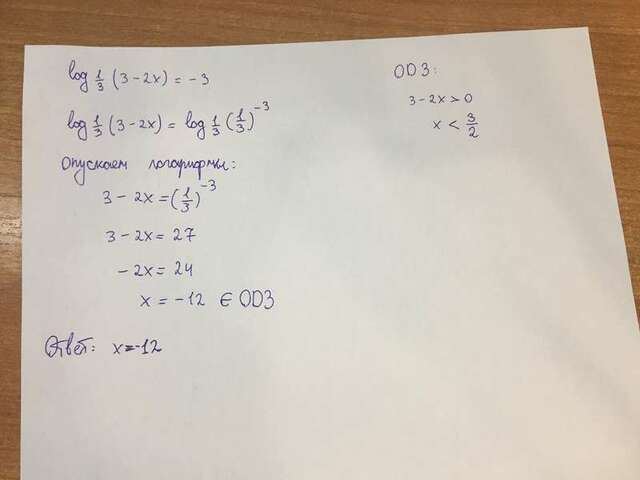 log 1/3 (3-2x) = -3
log 1/3 (3-2x) = log 1/3 (1/3)^-3
опускаем логарифмы:
3-2x = (1/3)^-3
3-2x = 27
-2x = 24
x = -12 ∈ ОДЗ
Ответ: x=-12
ОДЗ:
3-2x>0
x < 3/2